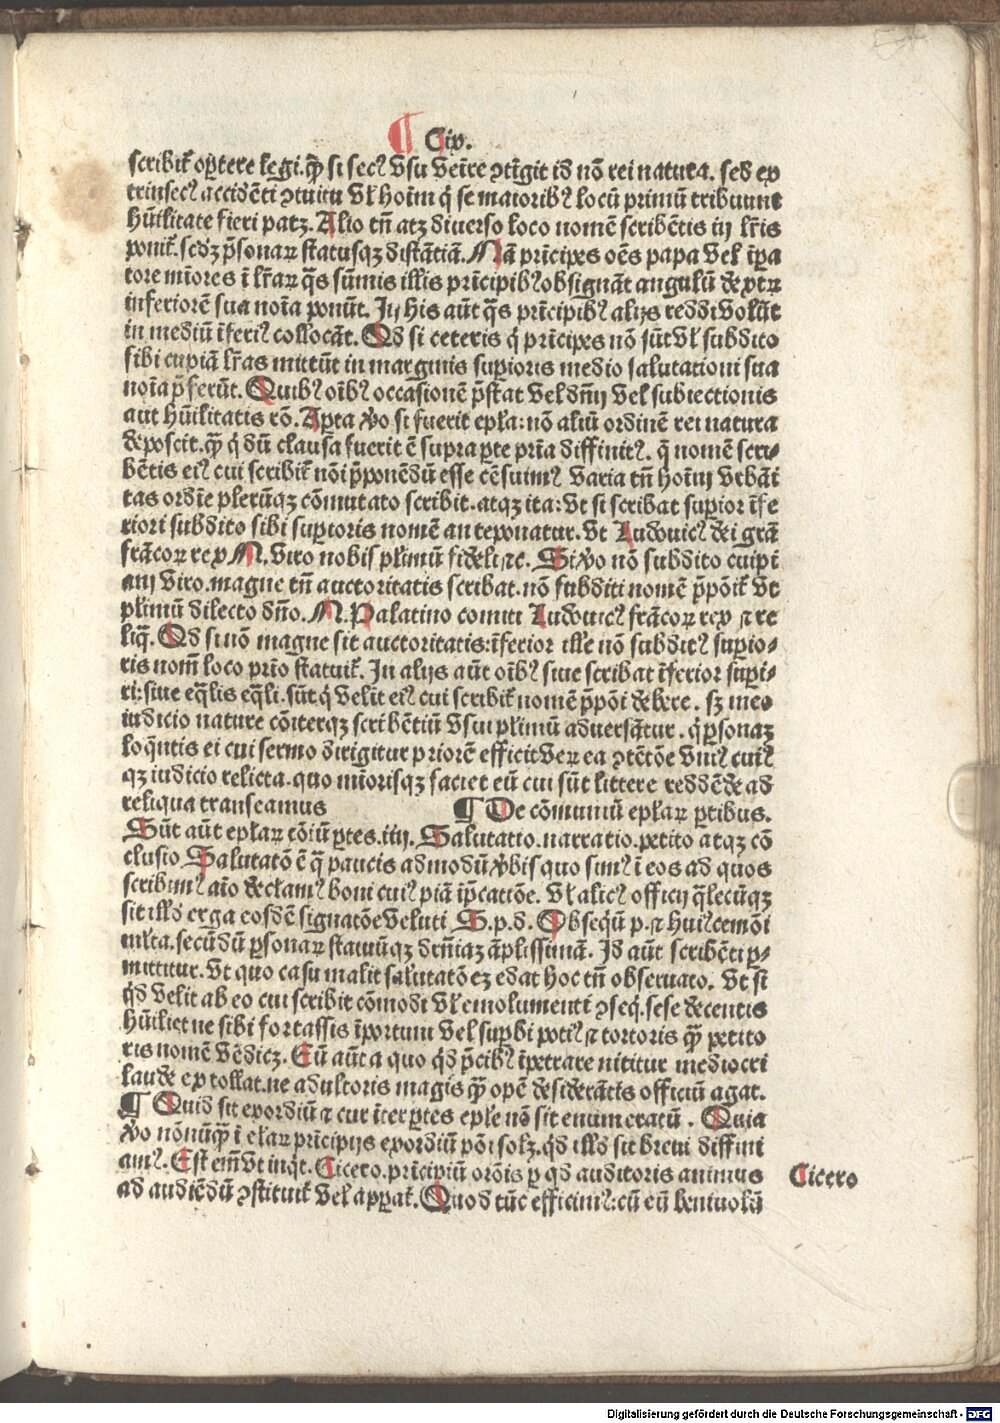 ¶ Civ.
scribit᷑ oꝑtere legi. qͫ si secꝰ vsu veīre ꝯtīgit id nō rei natura. sed ex
trinsecꝰ accidēti ꝯtuitu vl̓ hoīm q̓ se maioribꝰ locū primū tribuunt
hūilitate fieri patꝫ. Alio tn̄ atqꝫ diuerso loco nomē scribētis in lr̄is
ponit᷑. scdꝫ ꝑsonaꝝ statusqꝫ distātiā. Nā prīcipes oēs papa vel īpa
tore mīores ī lr̄aꝝ q̄s sūmis illis prīcipibꝰ obsignāt angulū dextꝝ
inferiorē sua noīa ponūt. In his aūt q̄s prīcipibꝰ alijs reddi volūt
in mediū īferiꝰ collocāt. Qd̓ si ceteris q̓ prīcipes nō sūt vl̓ subdito
sibi cupiā lr̄as mittūt in marginis supioris medio salutationi sua
noīa p̄ferūt. Quibꝰ oībꝰ occasionē p̄stat vel dn̄ij vel subiectionis
aut hūilitatis rō. Apta v̓o si fuerit epl̓a: nō aliū ordinē rei natura
deposcit. qͫ q̓ dū clausa fuerit ē supra ꝑte prīa diffinitꝰ. q̄ nomē scri⸗
bētis eiꝰ cui scribit᷑ nōi p̄ponēdū esse cēsuimꝰ Varia tn̄ hoīm vrbāi
tas ordīe plerūqꝫ cōmutato scribit. atqꝫ ita: vt si scribat supior īfe
riori subdito sibi supioris nomē anteponatur. vt Ludouicꝰ dei grā
frācoꝝ rex N. viro nobis pl̓imū fideli ⁊c. Si v̓o nō subdito cuipi
am viro. magne tn̄ auctoritatis scribat. nō subditi nomē p̄pōit᷑ vt
pl̓imū dilecto dn̄o. N. Palatino comiti Ludouicꝰ frācoꝝ rex ⁊ re
liq̄. Qd̓ si nō magne sit auctoritatis: īferior ille nō subditꝰ supio⸗
ris nom̄ loco prīo statuit᷑. In alijs aūt oībꝰ siue scribat īferior supi⸗
ri: siue eq̄lis eq̄li. sūt q̓ velit eiꝰ cui scribit᷑ nomē p̄pōi debere. sꝫ meo
iudicio nature cōiterqꝫ scribētiū vsui pl̓imū aduersātur. q̓ ꝑsonaꝫ
loq̄ntis ei cui sermo dirigitur priorē efficit veꝝ ea ꝯtētōe vniꝰ cuiꝰ
qꝫ iudicio relicta. quo mīorisqꝫ faciet eū cui sūt littere reddēde ad
reliqua transeamus ¶ De cōmuniū epl̓aꝝ ꝑtibus.
Sūt aūt epl̓aꝝ cōiū ꝑtes. iiij. Salutatio. narratio. petitio atqꝫ cō
clusio. Salutatō ē q̄ paucis admodū v̓bis quo simꝰ ī eos ad quos
scribimꝰ aīo declamꝰ boni cuiꝰpiā īp̄catiōe. vl̓ alicꝰ officij q̄lecūqꝫ
sit illd̓ erga eosdē signatōe veluti S. p. d. Obseq̄ū p. ⁊ huiꝰcemōi
ml̓ta. secūdū ꝑsonaꝝ statuūqꝫ drn̄iaꝫ āplissimā. Id aūt scribēti ꝑ⸗
mittitur. vt quo casu malit salutatōeꝫ edat hoc tn̄ obseruato. vt si
qd̓ velit ab eo cui scribit cōmodi vl̓ emolumenti ꝯseq̓. sese decentis
hūiliet ne sibi fortassis īportuni vel supbi potiꝰ ⁊ tortoris qͫ petito
ris nomē vēdicꝫ. Eū aūt a quo qd̓ p̄cibꝰ īpetrare nititur mediocri
laude extollat. ne adultoris magis qͫ opē desiderātis officiū agat.
¶ Quid sit exordiū ⁊ cur īter ꝑtes epl̓e nō sit enumeratū. Quia
v̓o nōnūqͫ ī epl̓aꝝ prīcipijs exordiū pōi solꝫ. qd̓ illd̓ sit breui diffini
amꝰ. Est em̄ vt inqt̓. Cicero. prīcipiū orōis ꝑ qd̓ auditoris animus
ad audiēdū ꝯstituit᷑ vel apparat᷑. Quod tūc efficimꝰ: cū eū beniuolū
Cicero
Digitalisierung gefördert durch die Deutsche Forschungsgemeinschaft - DFG